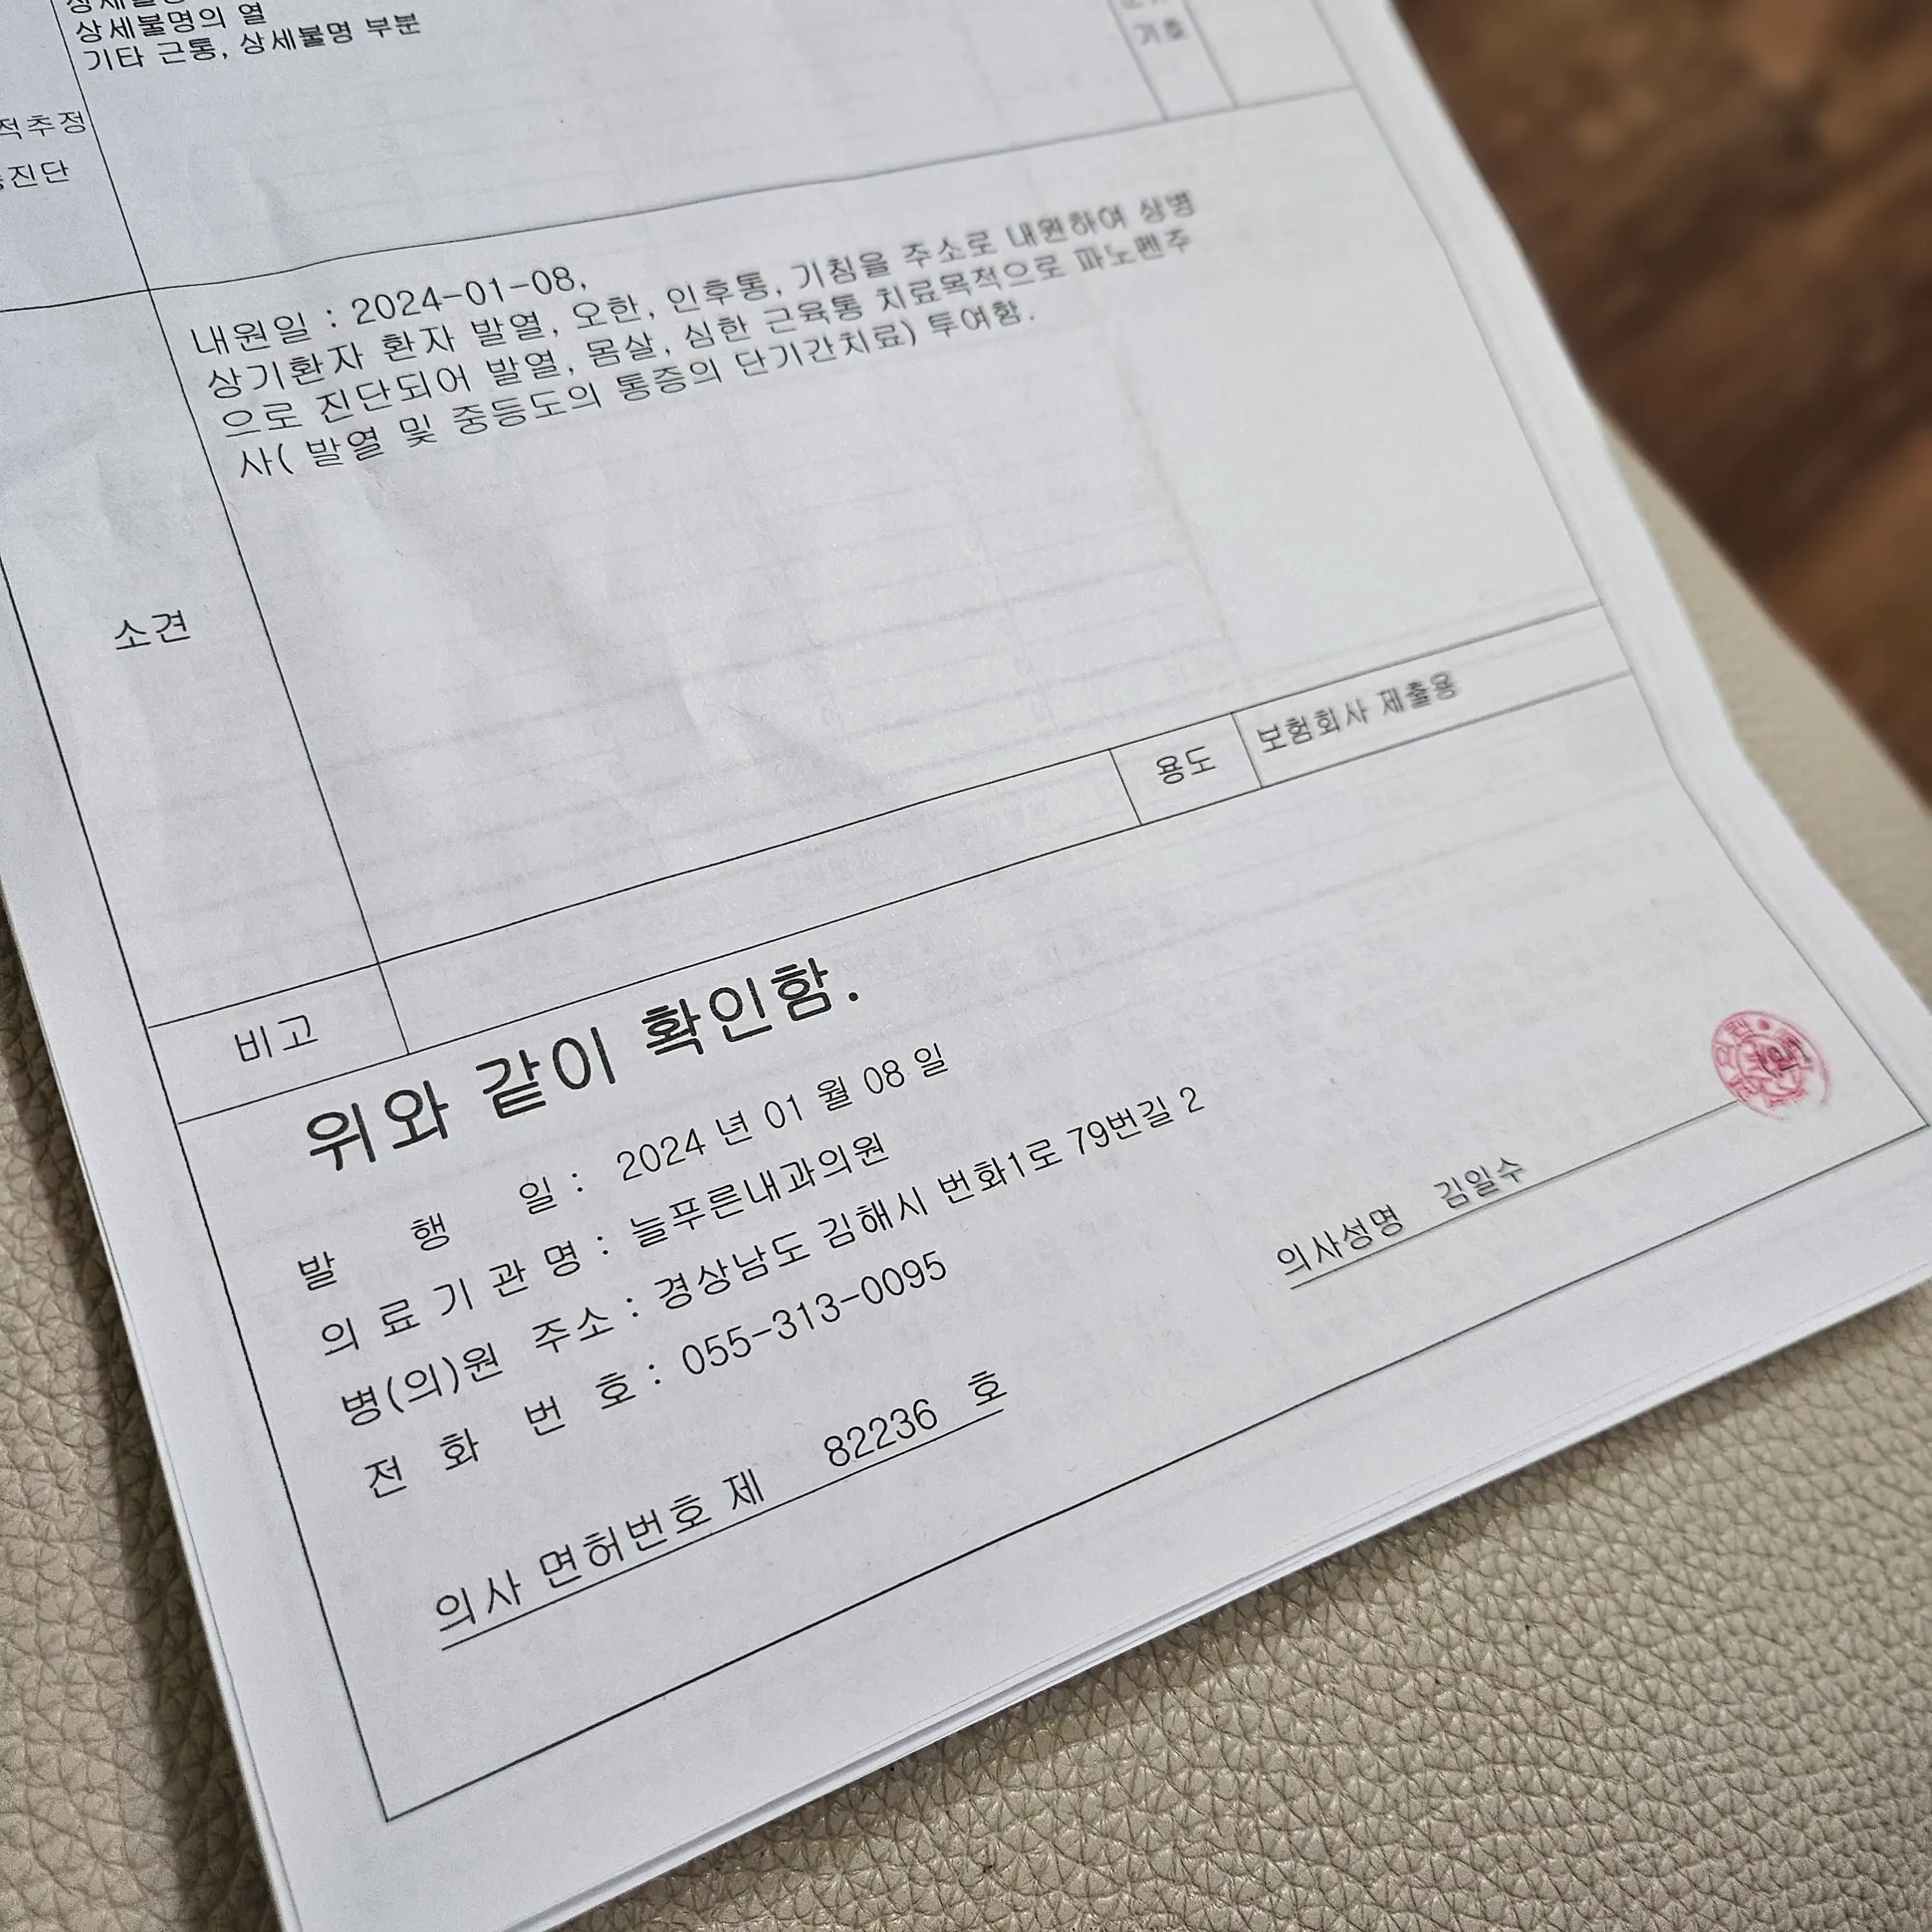 상세불명의 열
기타 근통, 상세불명 부분
기호
적추정
진단
내원일 : 2024-01-08,
상기환자 환자 발열, 오한, 인후통, 기침을 주소로 내원하여 상병
으로 진단되어 발열, 몸살, 심한 근육통 치료목적으로 파노펜주
사( 발열 및 중등도의 통증의 단기간치료) 투여함.
소견
용도 보험회사 제출용
비고
위와 같이 확인함.
발 행 일 : 2024 년 01 월 08 일
의 료 기 관 명 : 늘푸른내과의원
병(의)원 주소 : 경상남도 김해시 번화1로 79번길 2
전 화 번 호 : 055-313-0095
의사 면허번호 제 82236 호
의사성명 김일수